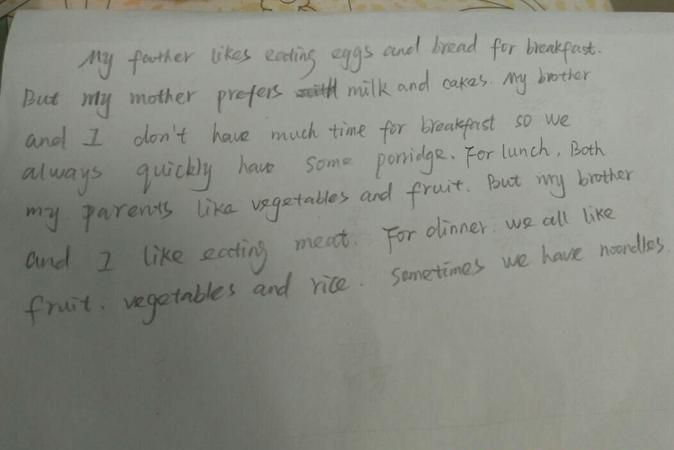 My father likes eating eggs and bread for breakfast.
But my mother prefers milk and cakes. My brother
and I don't have much time for breakfast so we
always quickly have some porridge. For lunch, Both
my parents like vegetables and fruit. But my brother
and I like eating meat. For dinner. we all like
fruit. vegetables and rice. Sometimes we have noondles.